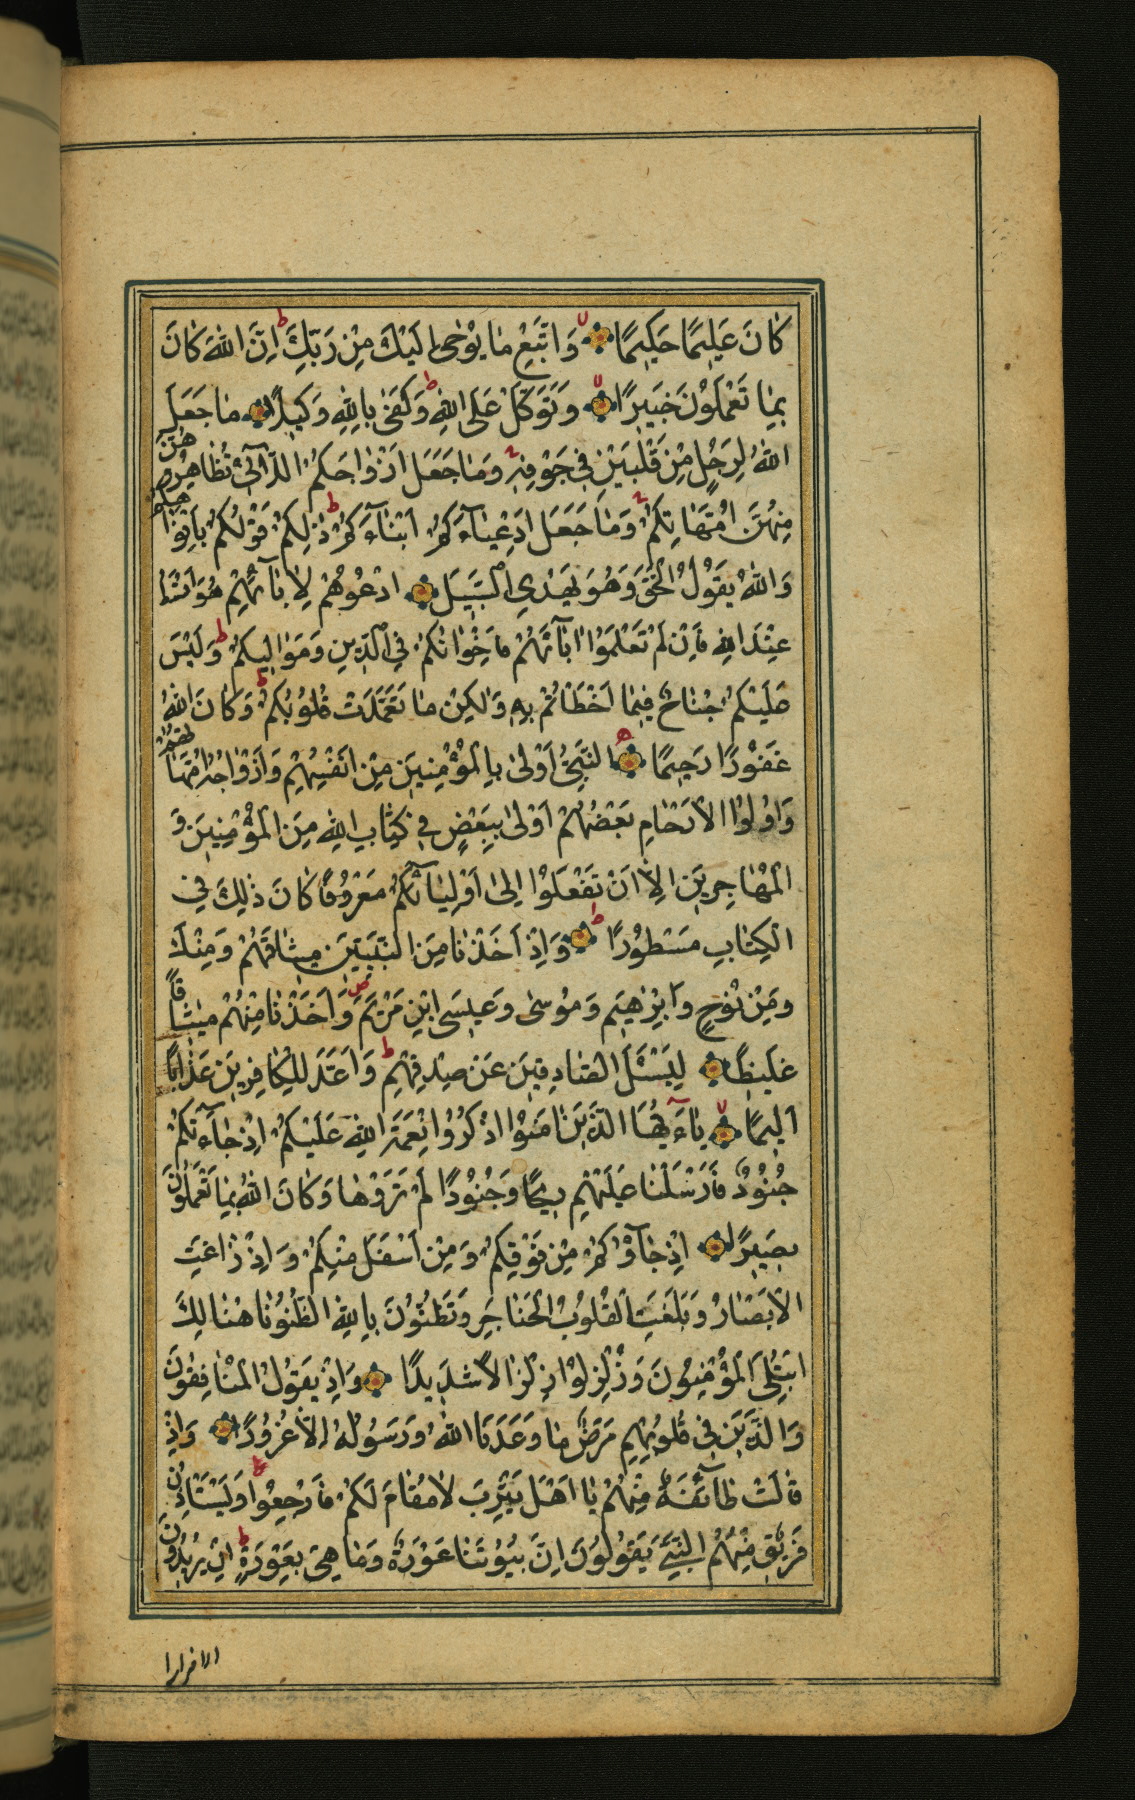 كَانَ عَلِيمًا حَكِيمًا وَاتَّبِعْ مَا يُوحَى إِلَيْكَ مِنْ رَبِّكَ ط إِنَّ اللهَ كَانَ
بِمَا تَعْمَلُونَ خَبِيرًا وَتَوَكَّلْ عَلَى اللهِ ط وَكَفَى بِاللهِ وَكِيلًا مَا جَعَلَ
اللهُ لِرَجُلٍ مِنْ قَلْبَيْنِ فِي جَوْفِهِ وَمَا جَعَلَ أَزْوَاجَكُمُ اللَّائِي تُظَاهِرُونَ
مِنْهُنَّ أُمَّهَاتِكُمْ وَمَا جَعَلَ أَدْعِيَاءَكُمْ أَبْنَاءَكُمْ ط ذَلِكُمْ قَوْلُكُمْ بِأَفْوَاهِكُمْ
وَاللهُ يَقُولُ الْحَقَّ وَهُوَ يَهْدِي السَّبِيلَ ادْعُوهُمْ لِآبَائِهِمْ هُوَ أَقْسَطُ
عِنْدَ اللهِ فَإِنْ لَمْ تَعْلَمُوا آبَاءَهُمْ فَإِخْوَانُكُمْ فِي الدِّينِ وَمَوَالِيكُمْ ط وَلَيْسَ
عَلَيْكُمْ جُنَاحٌ فِيمَا أَخْطَأْتُمْ بِهِ وَلَكِنْ مَا تَعَمَّدَتْ قُلُوبُكُمْ ط وَكَانَ اللهُ
غَفُورًا رَحِيمًا النَّبِيُّ أَوْلَى بِالْمُؤْمِنِينَ مِنْ أَنْفُسِهِمْ وَأَزْوَاجُهُ أُمَّهَاتُهُمْ ط
وَأُولُوا الْأَرْحَامِ بَعْضُهُمْ أَوْلَى بِبَعْضٍ فِي كِتَابِ اللهِ مِنَ الْمُؤْمِنِينَ وَ
الْمُهَاجِرِينَ إِلَّا أَنْ تَفْعَلُوا إِلَى أَوْلِيَائِكُمْ مَعْرُوفًا كَانَ ذَلِكَ فِي
الْكِتَابِ مَسْطُورًا وَإِذْ أَخَذْنَا مِنَ النَّبِيِّينَ مِيثَاقَهُمْ وَمِنْكَ
وَمِنْ نُوحٍ وَإِبْرَهِيمَ وَمُوسَى وَعِيسَى ابْنِ مَرْيَمَ ص وَأَخَذْنَا مِنْهُمْ مِيثَاقًا
غَلِيظًا لِيَسْئَلَ الصَّادِقِينَ عَنْ صِدْقِهِمْ ط وَأَعَدَّ لِلْكَافِرِينَ عَذَابًا
أَلِيمًا يَاءَيُّهَا الَّذِينَ آمَنُوا اذْكُرُوا نِعْمَةَ اللهِ عَلَيْكُمْ إِذْ جَاءَتْكُمْ
جُنُودٌ فَأَرْسَلْنَا عَلَيْهِمْ رِيحًا وَجُنُودًا لَمْ تَرَوْهَا وَكَانَ اللهُ بِمَا تَعْمَلُونَ
بَصِيرًا إِذْ جَاؤُكُمْ مِنْ فَوْقِكُمْ وَمِنْ أَسْفَلَ مِنْكُمْ وَإِذْ زَاغَتِ
الْأَبْصَارُ وَبَلَغَتِ الْقُلُوبُ الْحَنَاجِرَ وَتَظُنُّونَ بِاللهِ الظُّنُونَا هُنَالِكَ
ابْتُلِيَ الْمُؤْمِنُونَ وَزُلْزِلُوا زِلْزَالًا شَدِيدًا وَإِذْ يَقُولُ الْمُنَافِقُونَ
وَالَّذِينَ فِي قُلُوبِهِمْ مَرَضٌ مَا وَعَدَنَا اللهُ وَرَسُولُهُ إِلَّا غُرُورًا وَإِذْ
قَالَتْ طَائِفَةٌ مِنْهُمْ يَا أَهْلَ يَثْرِبَ لَا مُقَامَ لَكُمْ فَارْجِعُوا وَيَسْتَأْذِنُ
فَرِيقٌ مِنْهُمُ النَّبِيَّ يَقُولُونَ إِنَّ بُيُوتَنَا عَوْرَةٌ وَمَا هِيَ بِعَوْرَةٍ ط إِنْ يُرِيدُونَ
الا فرارا